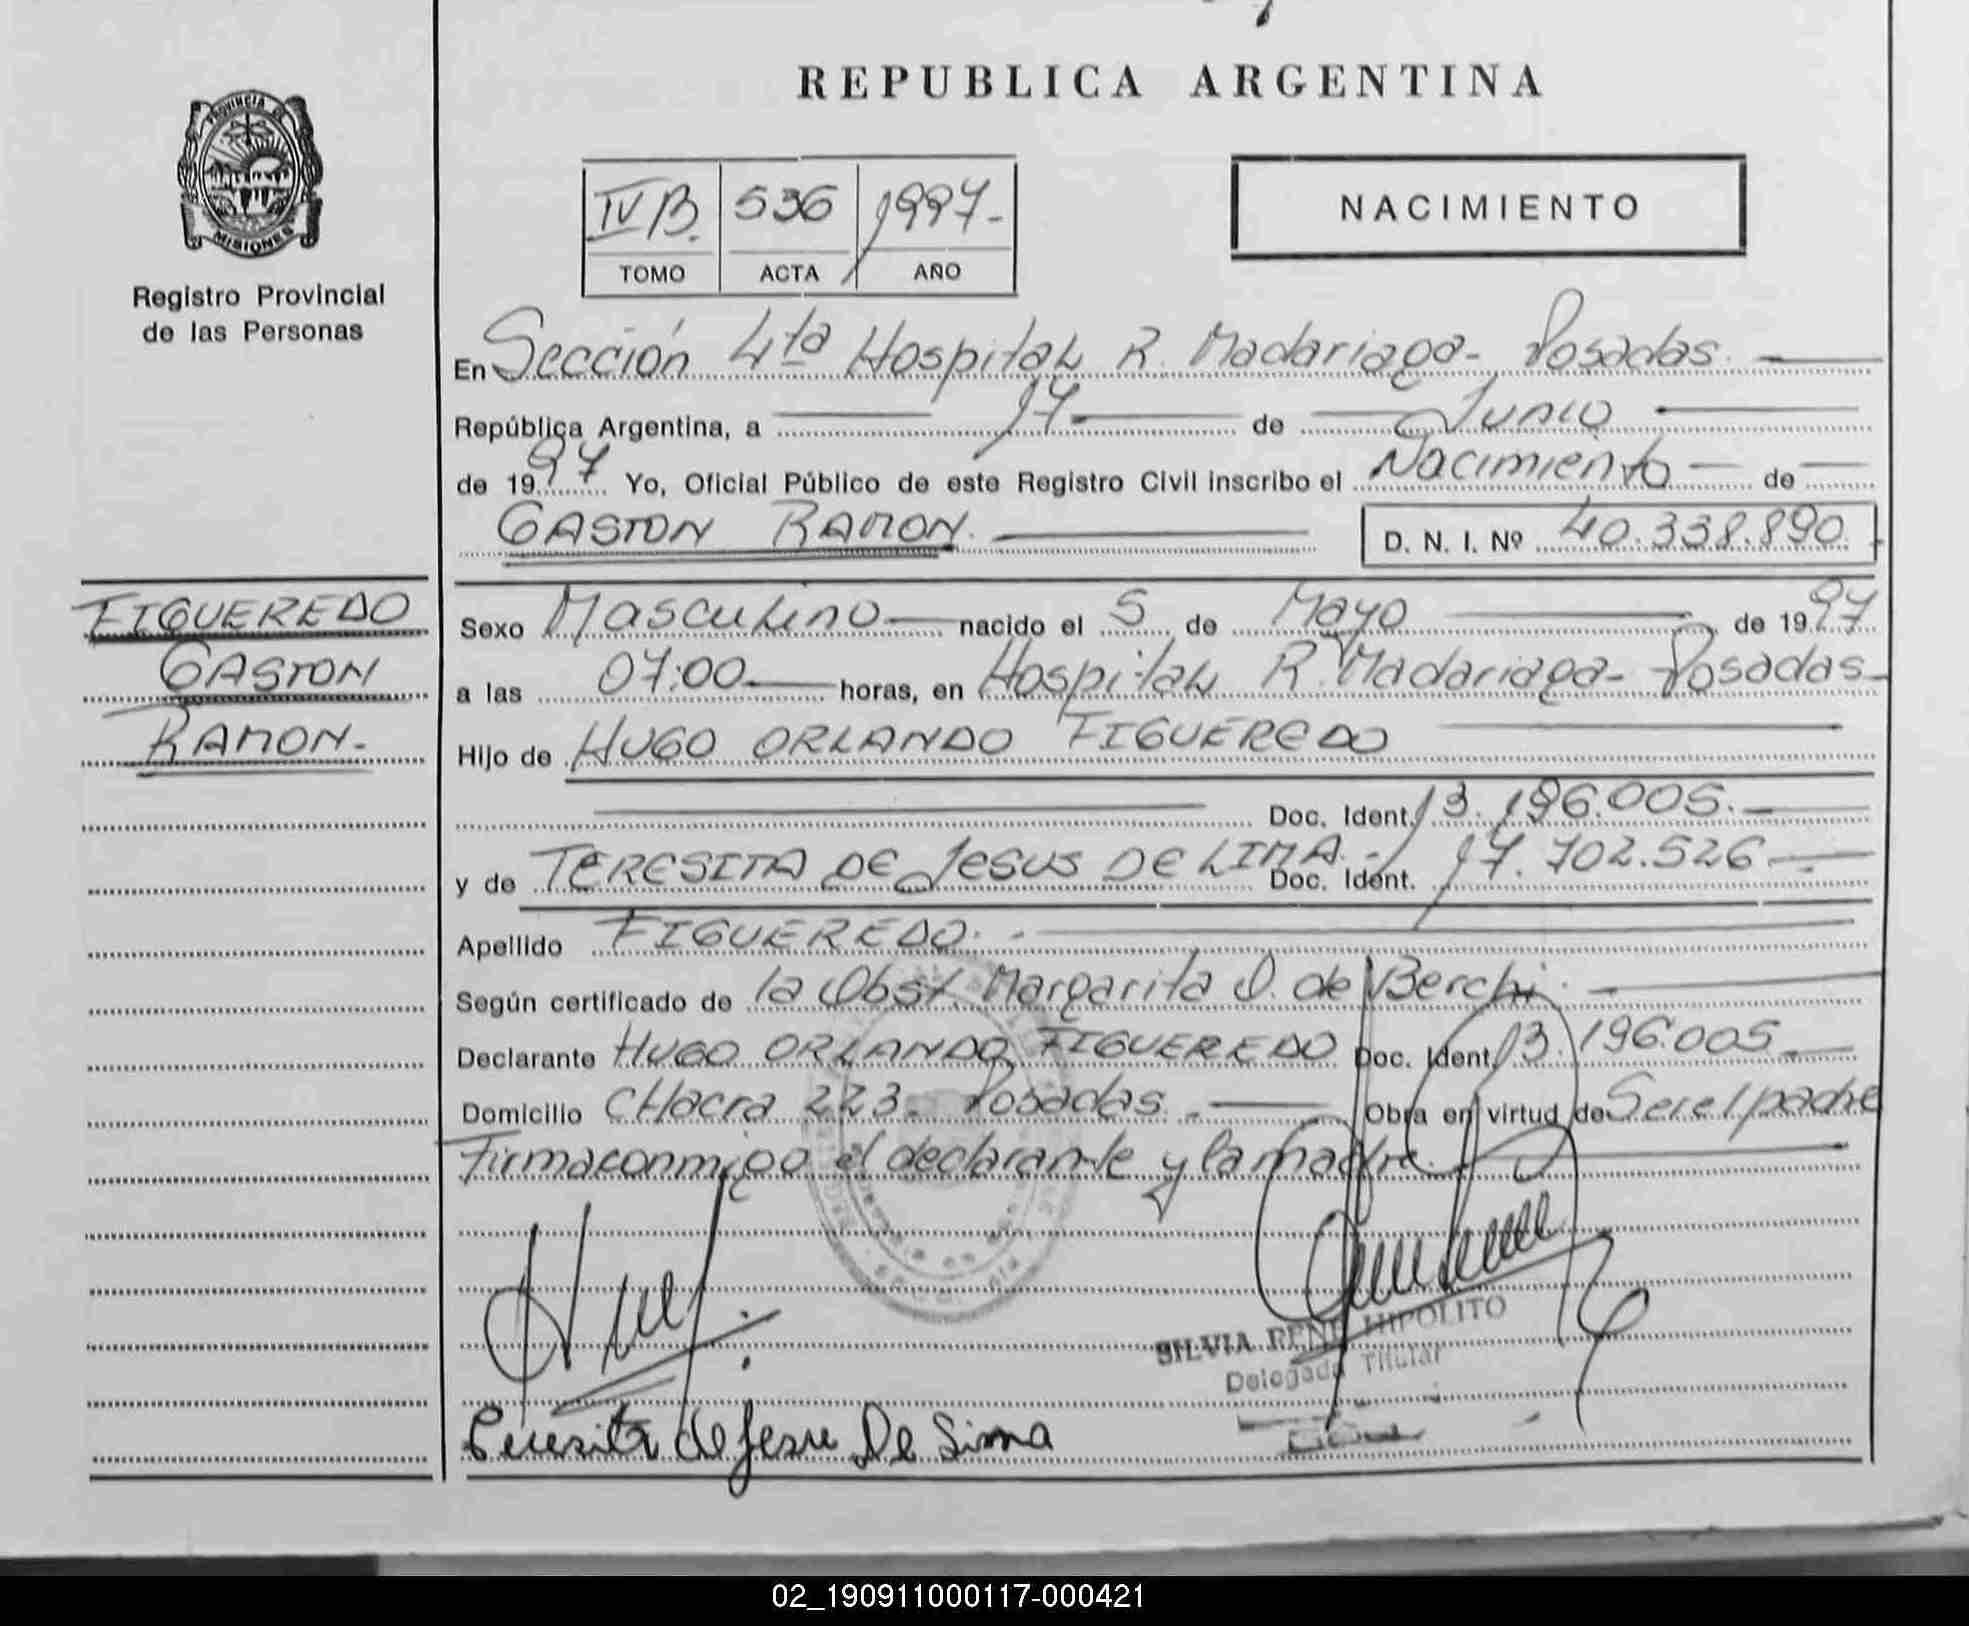 REPUBLICA ARGENTINA
PROVINCIA DE
MISIONES
Registro Provincial
de las Personas
IV B. 536 1997-
TOMO ACTA AÑO
NACIMIENTO
En Sección 4ta Hospital R. Madariaga- Posadas.
República Argentina, a 17 de Junio
de 1997 Yo, Oficial Público de este Registro Civil inscribo el Nacimiento de
GASTON RAMON. D. N. I. Nº 40.338.890
FIGUEREDO
GASTON
RAMON.-
Sexo Masculino nacido el 5 de Mayo de 1997
a las 07:00 horas, en Hospital R. Madariaga- Posadas-
Hijo de HUGO ORLANDO FIGUEREDO
Doc. Ident. 13.196.005.
y de TERESITA DE JESUS DE LIMA.- Doc. Ident. 17.702.526
Apellido FIGUEREDO.-
Según certificado de la Obst. Margarita D. de Berchi.
Declarante HUGO ORLANDO FIGUEREDO Doc. Ident. 13.196.005
Domicilio CHacra 223. Posadas. Obra en virtud de Ser el padre
Firma conmigo el declarante y la madre.
SILVIA RENE HIPOLITO
Delegada Titular
Teresita de Jesu De Lima
02_190911000117-000421